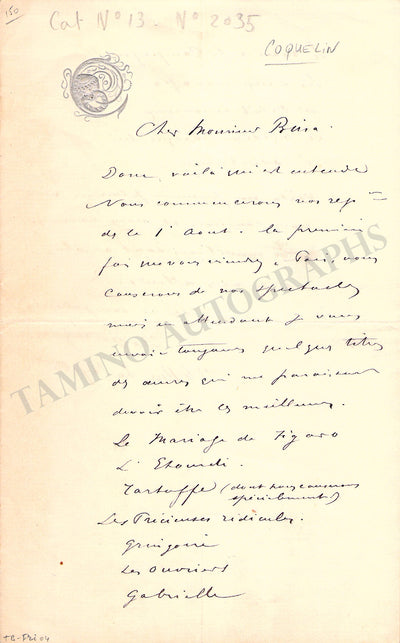 150
Cat N° 13 - N° 2035
COQUELIN
Cher Monsieur
Donc, voilà qui est entendu
Nous commencerons nos rep
dès le 1er Aout. la première
fois que vous viendrez à Paris, nous
causerons de nos spectacles
mais en attendant je vous
envoie toujours quelques titres
des œuvres qui me paraissent
devoir être les meilleures.
Le Mariage de Figaro
L'Etourdi.
Tartuffe (dont nous causerons
spécialement)
Les Précieuses ridicules.
Gringoire
Les Ouvriers
Gabrielle
TAMINO AUTOGRAPHS